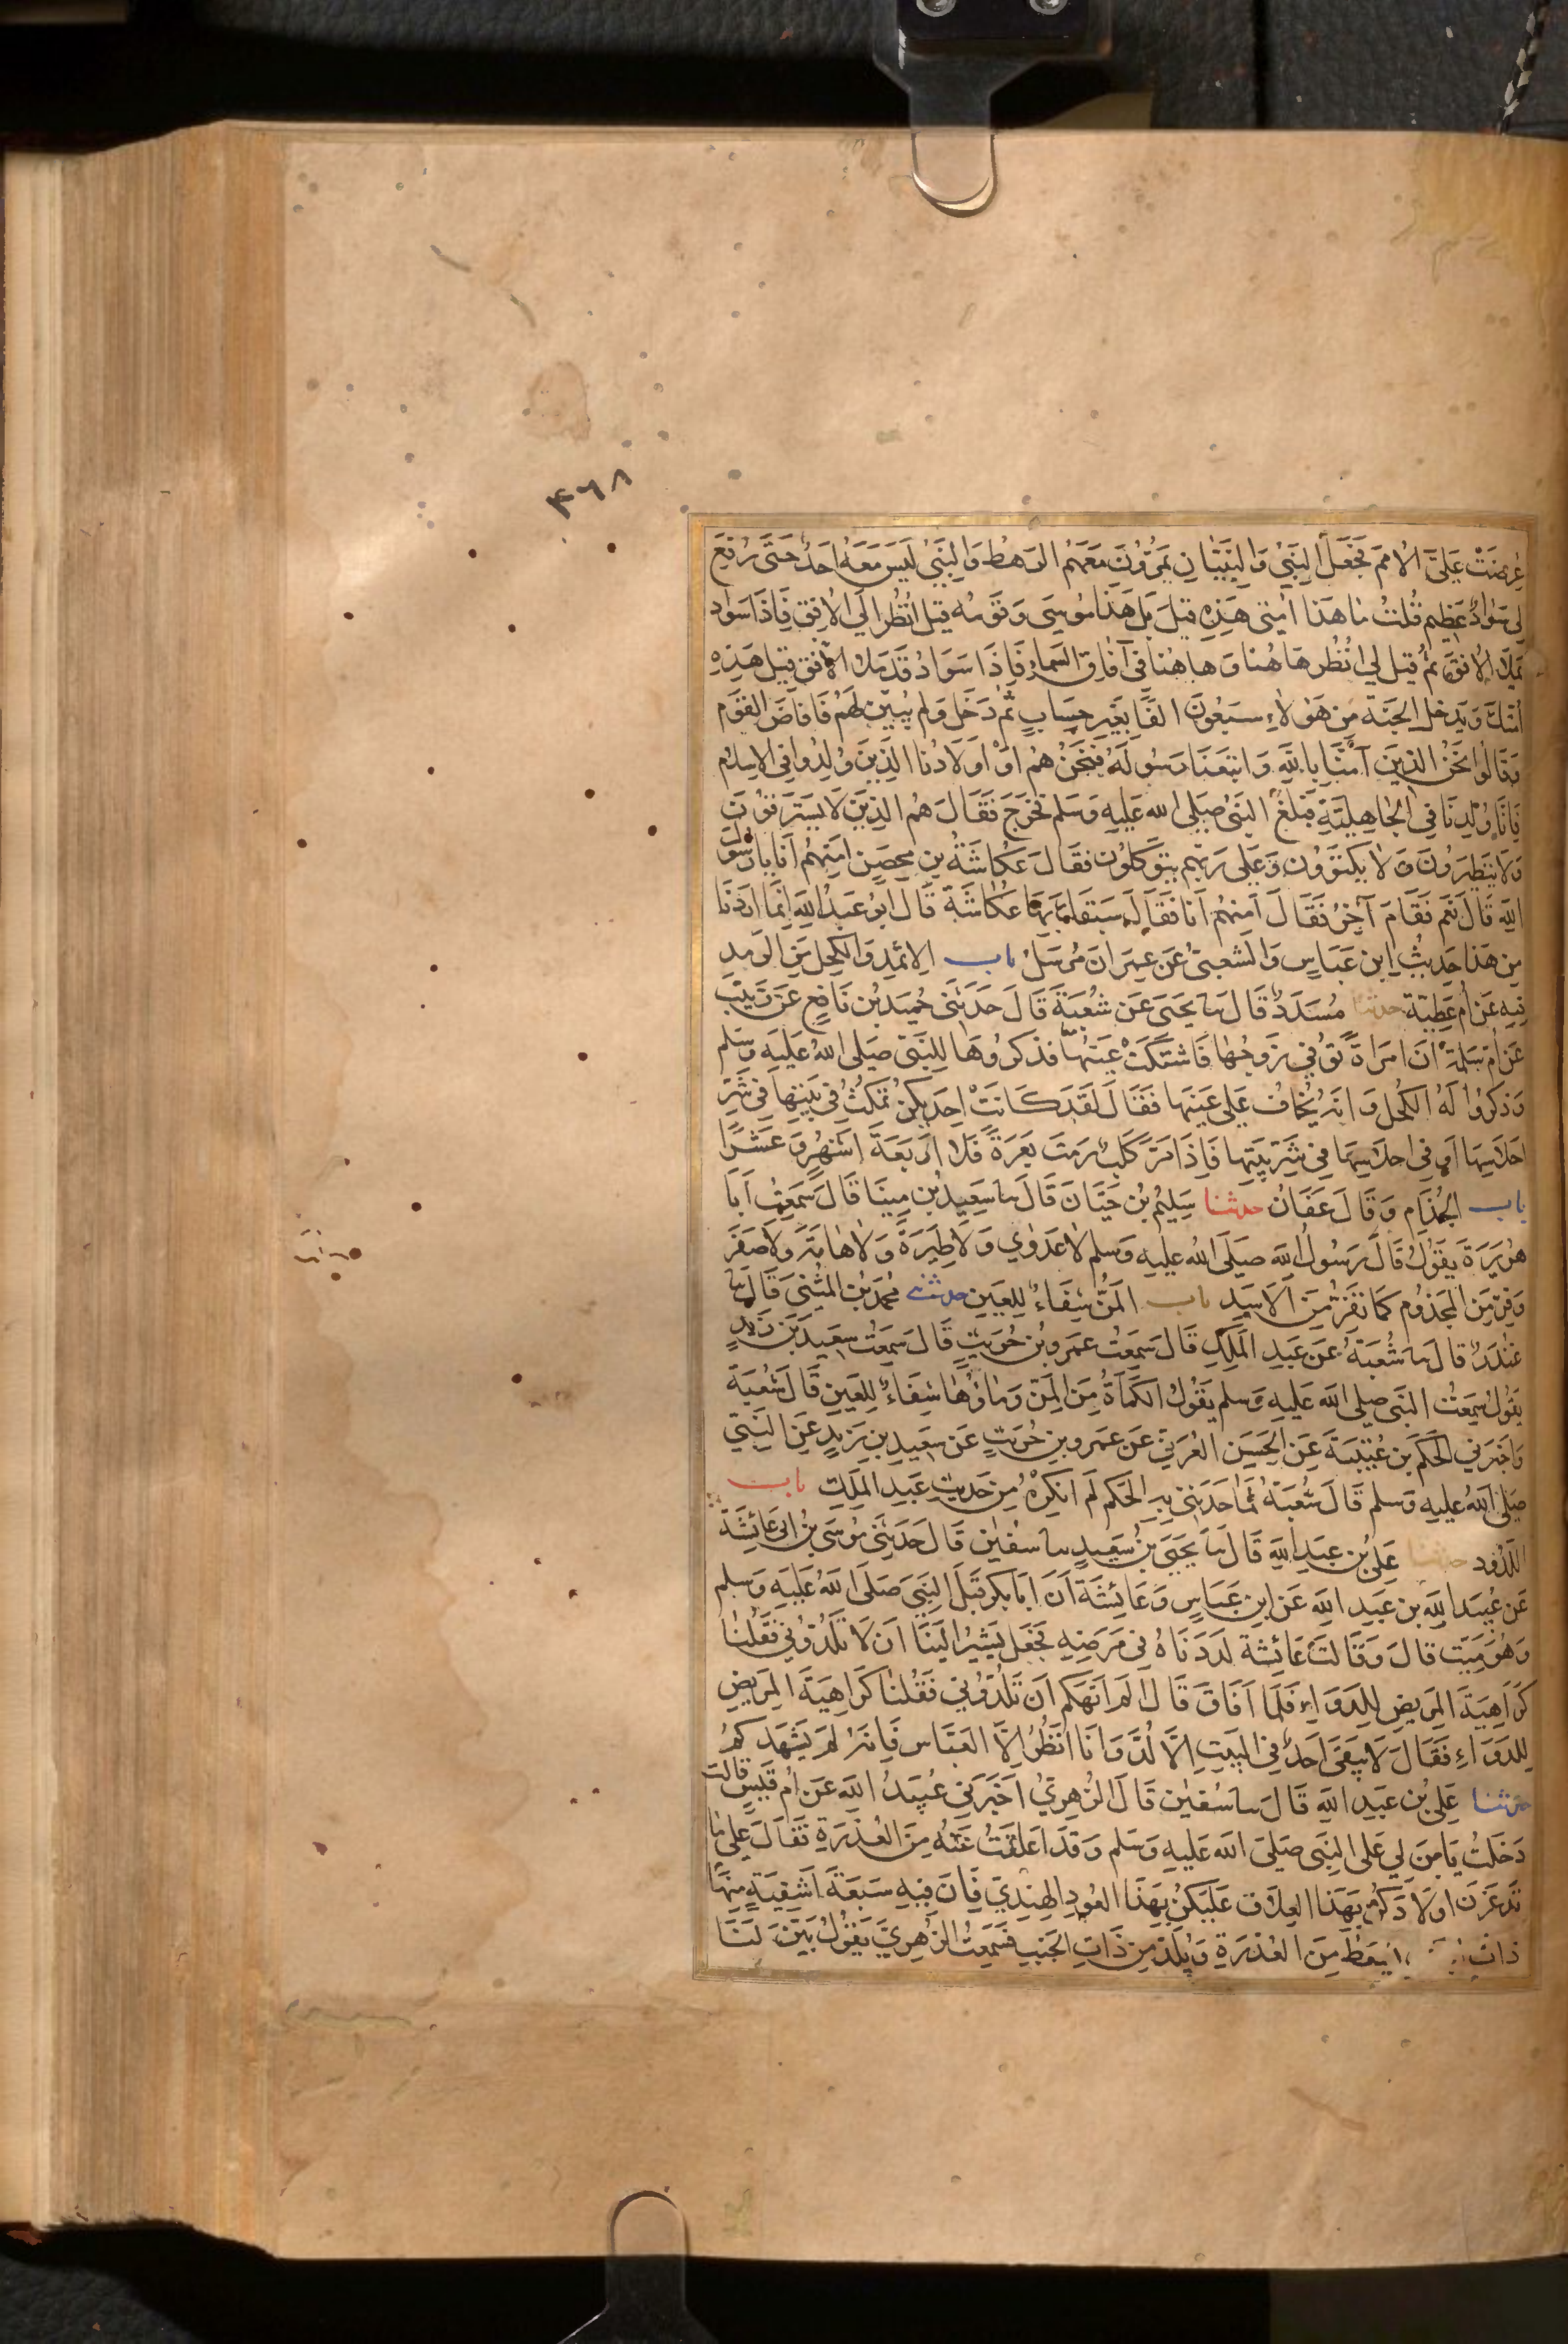 ۴۶۸
عُرِضَتْ عَلَيَّ الأُمَمُ فَجَعَلَ النَّبِيُّ وَالنَّبِيَّانِ يَمُرُّونَ مَعَهُمُ الرَّهْطُ وَالنَّبِيُّ لَيْسَ مَعَهُ أَحَدٌ حَتَّى رُفِعَ
لِي سَوَادٌ عَظِيمٌ قُلْتُ مَا هَذَا أُمَّتِي هَذِهِ قِيلَ بَلْ هَذَا مُوسَى وَقَوْمُهُ قِيلَ انْظُرْ إِلَى الأُفُقِ فَإِذَا سَوَادٌ
يَمْلَأُ الأُفُقَ ثُمَّ قِيلَ لِي انْظُرْ هَا هُنَا وَهَا هُنَا فِي آفَاقِ السَّمَاءِ فَإِذَا سَوَادٌ قَدْ مَلَأَ الأُفُقَ قِيلَ هَذِهِ
أُمَّتُكَ وَيَدْخُلُ الجَنَّةَ مِنْ هَؤُلَاءِ سَبْعُونَ أَلْفًا بِغَيْرِ حِسَابٍ ثُمَّ دَخَلَ وَلَمْ يُبَيِّنْ لَهُمْ فَأَفَاضَ القَوْمُ
وَقَالُوا نَحْنُ الَّذِينَ آمَنَّا بِاللَّهِ وَاتَّبَعْنَا رَسُولَهُ فَنَحْنُ هُمْ أَوْ أَوْلَادُنَا الَّذِينَ وُلِدُوا فِي الإِسْلَامِ
فَإِنَّا وُلِدْنَا فِي الجَاهِلِيَّةِ فَبَلَغَ النَّبِيَّ صَلَّى اللَّهُ عَلَيْهِ وَسَلَّمَ فَخَرَجَ فَقَالَ هُمُ الَّذِينَ لَا يَسْتَرْقُونَ
وَلَا يَتَطَيَّرُونَ وَلَا يَكْتَوُونَ وَعَلَى رَبِّهِمْ يَتَوَكَّلُونَ فَقَالَ عُكَّاشَةُ بْنُ مِحْصَنٍ أَمِنْهُمْ أَنَا يَا رَسُولَ
اللَّهِ قَالَ نَعَمْ فَقَامَ آخَرُ فَقَالَ أَمِنْهُمْ أَنَا فَقَالَ سَبَقَكَ بِهَا عُكَّاشَةُ قَالَ أَبُو عَبْدِ اللَّهِ إِنَّمَا أَرَدْنَا
مِنْ هَذَا حَدِيثَ ابْنِ عَبَّاسٍ وَالشَّعْبِيُّ عَنْ عِمْرَانَ مُرْسَلٌ باب الإِثْمِدِ وَالكُحْلِ مِنَ الرَّمَدِ
فِيهِ عَنْ أُمِّ عَطِيَّةَ حدثنا مُسَدَّدٌ قَالَ نا يَحْيَى عَنْ شُعْبَةَ قَالَ حَدَّثَنِي حُمَيْدُ بْنُ نَافِعٍ عَنْ زَيْنَبَ
عَنْ أُمِّ سَلَمَةَ أَنَّ امْرَأَةً تُوُفِّيَ زَوْجُهَا فَاشْتَكَتْ عَيْنَهَا فَذَكَرُوهَا لِلنَّبِيِّ صَلَّى اللَّهُ عَلَيْهِ وَسَلَّمَ
وَذَكَرُوا لَهُ الكُحْلَ وَأَنَّهُ يُخَافُ عَلَى عَيْنِهَا فَقَالَ لَقَدْ كَانَتْ إِحْدَاكُنَّ تَمْكُثُ فِي بَيْتِهَا فِي شَرِّ
أَحْلَاسِهَا أَوْ فِي أَحْلَاسِهَا فِي شَرِّ بَيْتِهَا فَإِذَا مَرَّ كَلْبٌ رَمَتْ بَعْرَةً فَلَا أَرْبَعَةَ أَشْهُرٍ وَعَشْرًا
باب الجُذَامِ وَقَالَ عَفَّانُ حدثنا سَلِيمُ بْنُ حَيَّانَ قَالَ نا سَعِيدُ بْنُ مِينَا قَالَ سَمِعْتُ أَبَا
هُرَيْرَةَ يَقُولُ قَالَ رَسُولُ اللَّهِ صَلَّى اللَّهُ عَلَيْهِ وَسَلَّمَ لَا عَدْوَى وَلَا طِيَرَةَ وَلَا هَامَّةَ وَلَا صَفَرَ
وَفِرَّ مِنَ المَجْذُومِ كَمَا تَفِرُّ مِنَ الأَسَدِ باب المَنُّ شِفَاءٌ لِلْعَيْنِ حدثني مُحَمَّدُ بْنُ المُثَنَّى قَالَ نا
غُنْدَرٌ قَالَ نا شُعْبَةُ عَنْ عَبْدِ المَلِكِ قَالَ سَمِعْتُ عَمْرَو بْنَ حُرَيْثٍ قَالَ سَمِعْتُ سَعِيدَ بْنَ زَيْدٍ
يَقُولُ سَمِعْتُ النَّبِيَّ صَلَّى اللَّهُ عَلَيْهِ وَسَلَّمَ يَقُولُ الكَمْأَةُ مِنَ المَنِّ وَمَاؤُهَا شِفَاءٌ لِلْعَيْنِ قَالَ شُعْبَةُ
وَأَخْبَرَنِي الحَكَمُ بْنُ عُتَيْبَةَ عَنِ الحَسَنِ العُرَنِيِّ عَنْ عَمْرِو بْنِ حُرَيْثٍ عَنْ سَعِيدِ بْنِ زَيْدٍ عَنِ النَّبِيِّ
صَلَّى اللَّهُ عَلَيْهِ وَسَلَّمَ قَالَ شُعْبَةُ لَمَّا حَدَّثَنِي بِهِ الحَكَمُ لَمْ أُنْكِرْهُ مِنْ حَدِيثِ عَبْدِ المَلِكِ باب
اللَّدُودِ حدثنا عَلِيُّ بْنُ عَبْدِ اللَّهِ قَالَ نا يَحْيَى بْنُ سَعِيدٍ نا سُفْيَانُ قَالَ حَدَّثَنِي مُوسَى بْنُ أَبِي عَائِشَةَ
عَنْ عُبَيْدِ اللَّهِ بْنِ عَبْدِ اللَّهِ عَنِ ابْنِ عَبَّاسٍ وَعَائِشَةَ أَنَّ أَبَا بَكْرٍ قَبَّلَ النَّبِيَّ صَلَّى اللَّهُ عَلَيْهِ وَسَلَّمَ
وَهُوَ مَيِّتٌ قَالَ وَقَالَتْ عَائِشَةُ لَدَدْنَاهُ فِي مَرَضِهِ فَجَعَلَ يُشِيرُ إِلَيْنَا أَنْ لَا تَلُدُّونِي فَقُلْنَا
كَرَاهِيَةَ المَرِيضِ لِلدَّوَاءِ فَلَمَّا أَفَاقَ قَالَ أَلَمْ أَنْهَكُمْ أَنْ تَلُدُّونِي فَقُلْنَا كَرَاهِيَةَ المَرِيضِ
لِلدَّوَاءِ فَقَالَ لَا يَبْقَى أَحَدٌ فِي البَيْتِ إِلَّا لُدَّ وَأَنَا أَنْظُرُ إِلَّا العَبَّاسَ فَإِنَّهُ لَمْ يَشْهَدْكُمْ
حدثنا عَلِيُّ بْنُ عَبْدِ اللَّهِ قَالَ نا سُفْيَانُ قَالَ الزُّهْرِيُّ أَخْبَرَنِي عُبَيْدُ اللَّهِ عَنْ أُمِّ قَيْسٍ قَالَتْ
دَخَلْتُ بِابْنٍ لِي عَلَى النَّبِيِّ صَلَّى اللَّهُ عَلَيْهِ وَسَلَّمَ وَقَدْ أَعْلَقْتُ عَنْهُ مِنَ العُذْرَةِ فَقَالَ عَلَى مَا
تَدْغَرْنَ أَوْلَادَكُنَّ بِهَذَا العِلَاقِ عَلَيْكُنَّ بِهَذَا العُودِ الهِنْدِيِّ فَإِنَّ فِيهِ سَبْعَةَ أَشْفِيَةٍ مِنْهَا
ذَاتُ يُسْعَطُ مِنَ العُذْرَةِ وَيُلَدُّ مِنْ ذَاتِ الجَنْبِ فَسَمِعْتُ الزُّهْرِيَّ يَقُولُ بَيَّنَ لَنَا